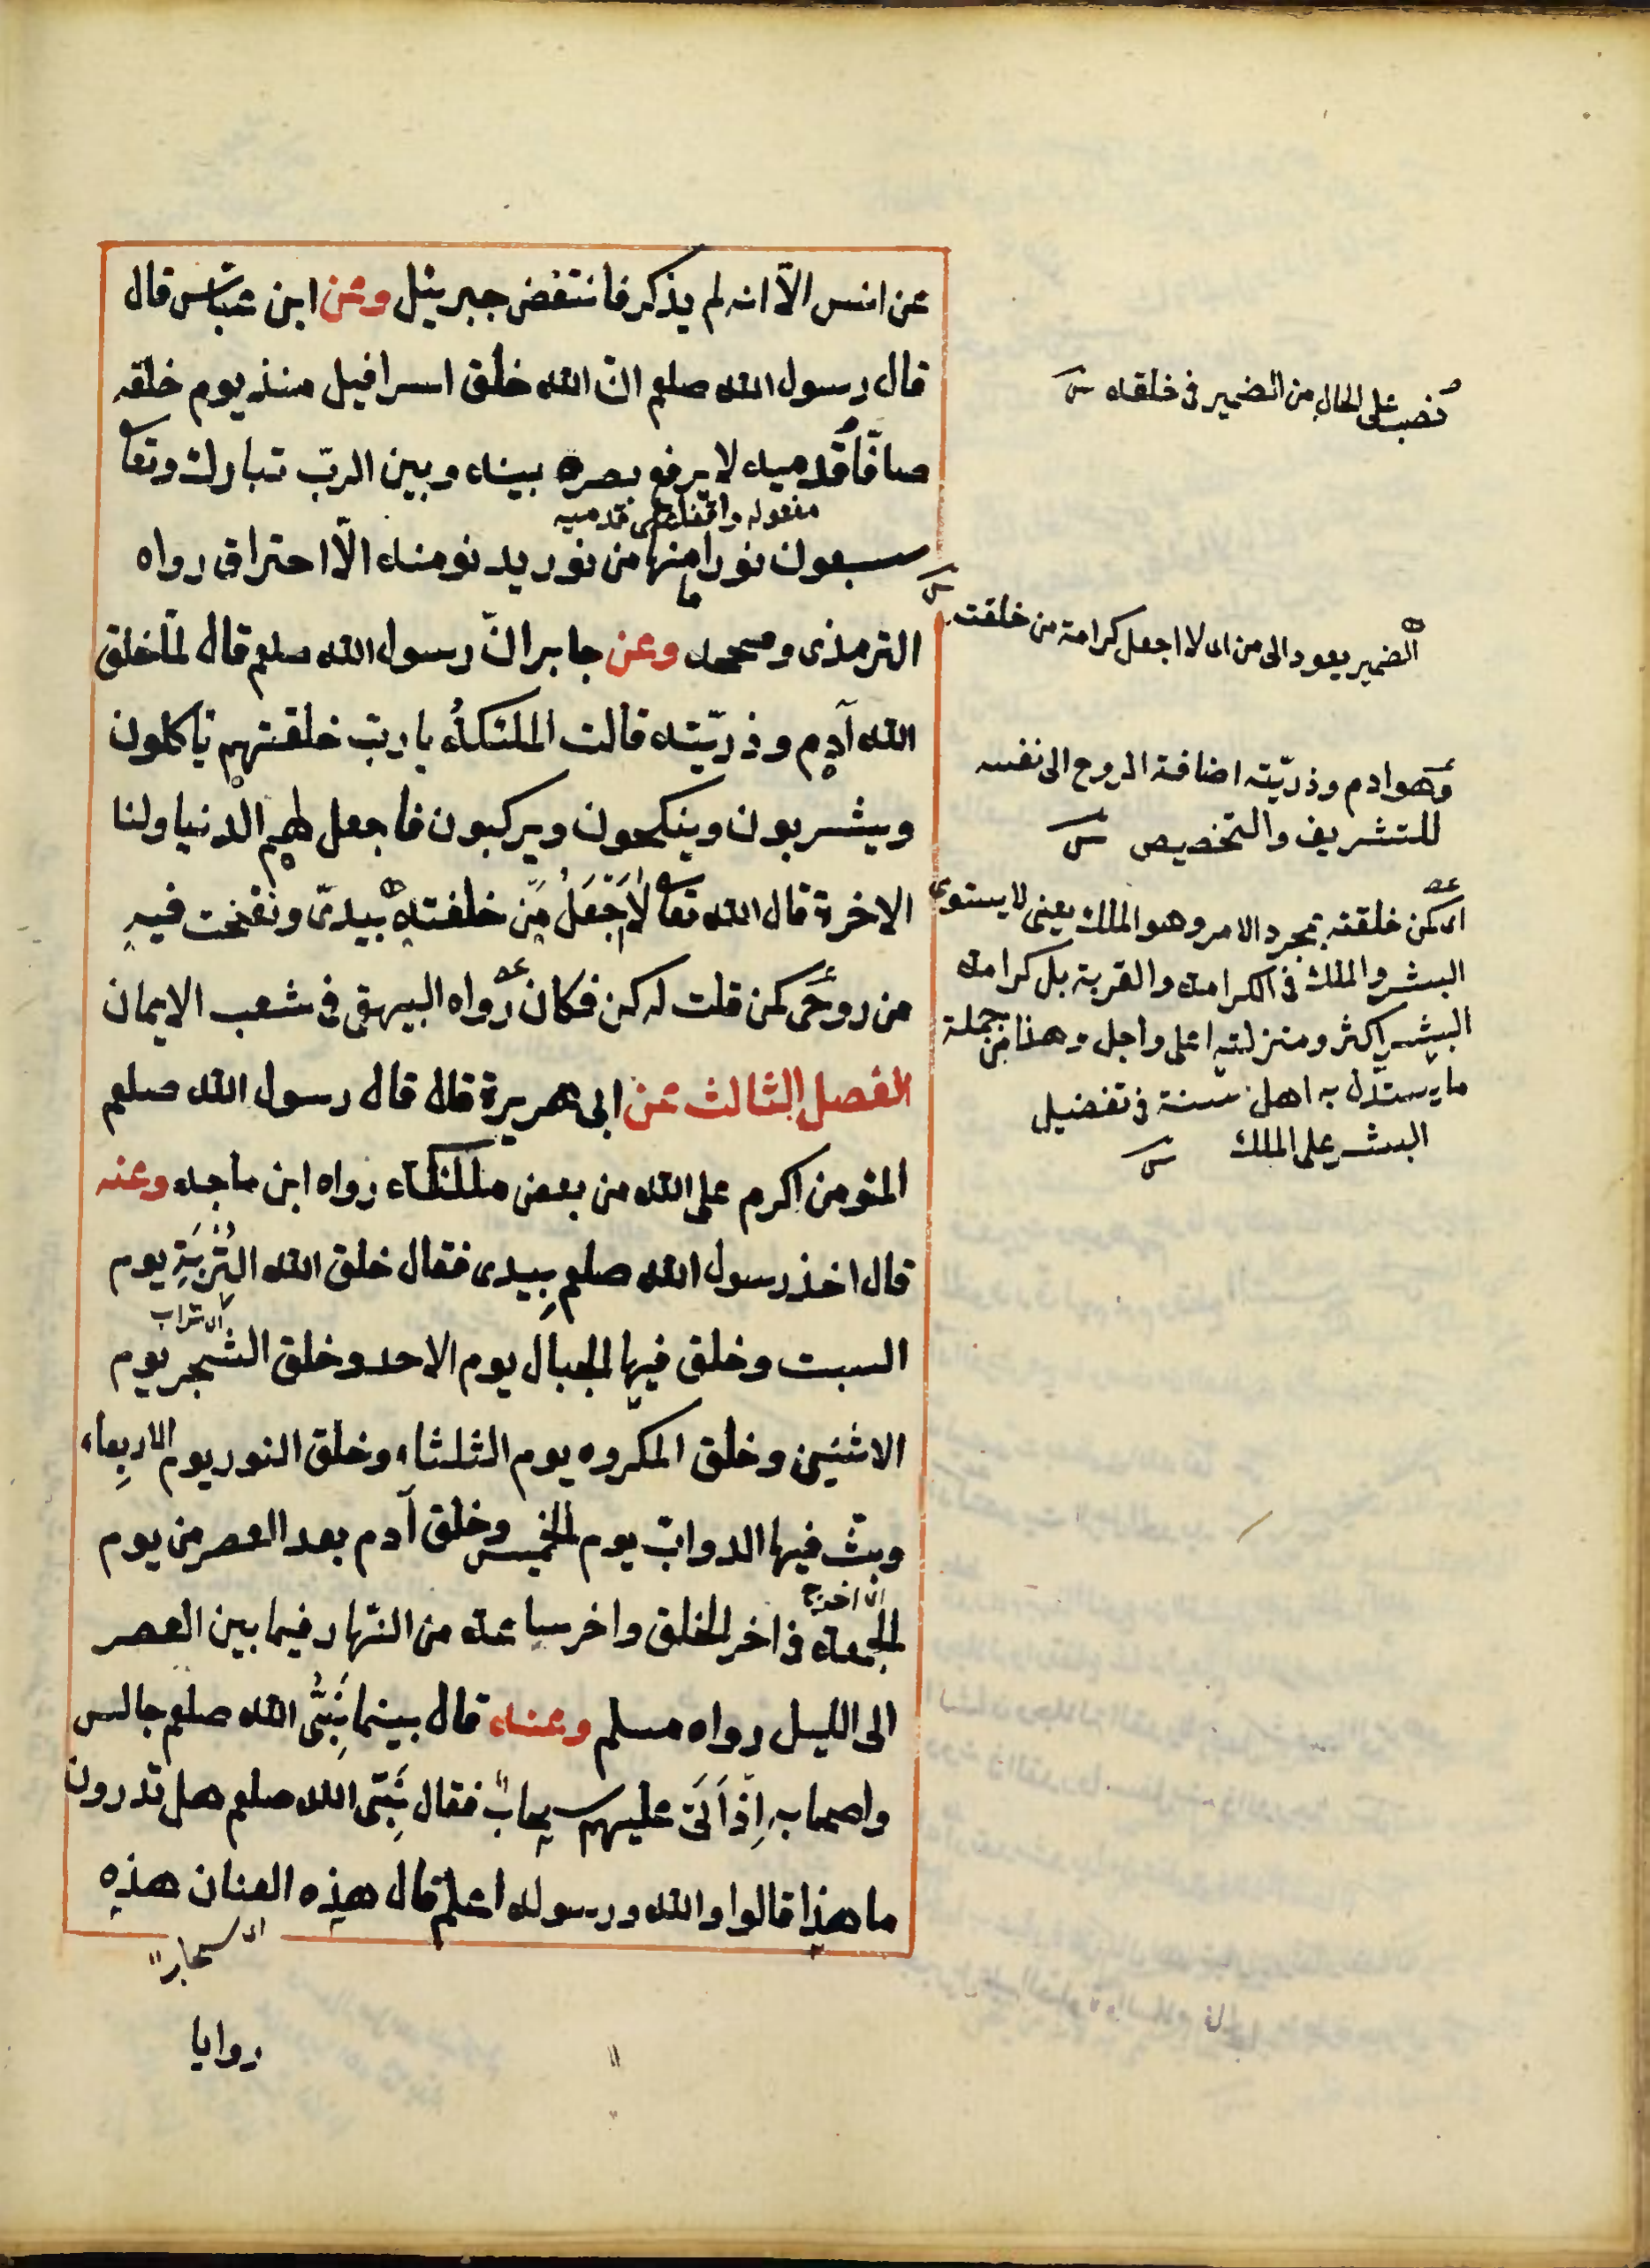 عن انس الّا انه لم يذكر فانتفض جبرئيل وعن ابن عبّاس قال
قال رسول الله صلعم انّ الله خلق اسرافيل منذ يوم خلقه
صافّاً قدميه لا يرفع بصره بينه وبين الربّ تبارك وتعا
مفعوله واقفا على قدميه
سبعون نورا ما منها من نور يدنو منه الّا احترق رواه
الترمذى وصححه وعن جابر انّ رسول الله صلعم قال لمّا خلق
الله آدم وذريّته قالت الملئكةُ يا ربّ خلقتهم ياكلون
ويشربون وينكحون ويركبون فاجعل لهم الدنيا ولنا
الاخرة قال الله تعا لا اَجْعَلُ مَن خلقته بيدىّ ونفخت فيه
من روحى كمن قلت له كن فكان رواه البيهقى فى شعب الايمان
الفصل الثالث عن ابى هريرة قال قال رسول الله صلعم
المئومن اكرم على الله من بعض ملئكته رواه ابن ماجه وعنه
قال اخذ رسول الله صلعم بِيدى فقال خلق الله التُّرْبَةِ يوم
اى تراب
السبت وخلق فيها الجبال يوم الاحد وخلق الشجر يوم
الاثنين وخلق المكروه يوم الثلثاء وخلق النور يوم الاربِعاء
وبثّ فيها الدوابّ يوم الخميس وخلق آدم بعد العصر من يوم
الجمعة فى اخر الخلق واخر ساعة من النّهار فيما بين العصر
الى الليل رواه مسلم وعنه قال بينما نَبِىُّ الله صلعم جالس
واصحابه اِذْ اَتَى عليهم سحابٌ فقال نَبِىّ الله صلعم هل تدرون
ما هذا قالوا والله ورسوله اعلم قال هذه العنان هذه
اى سحاب
روايا
نصب على الحال من الضمير فى خلقه
الضمير يعود الى من اى لا اجعل كرامة من خلقت
وهو ادم وذريّته اضافة الروح الى نفسه
للتشريف والتخصيص
اى كمن خلقته بمجرد الامر وهو الملك يعنى لا يستوى
البشر والملك فى الكرامة والقربة بل كرامة
البشر اكثر ومنزلته اعلى واجل وهذا من جملة
ما يستدّل به اهل سنة فى تفضيل
البشر على الملك